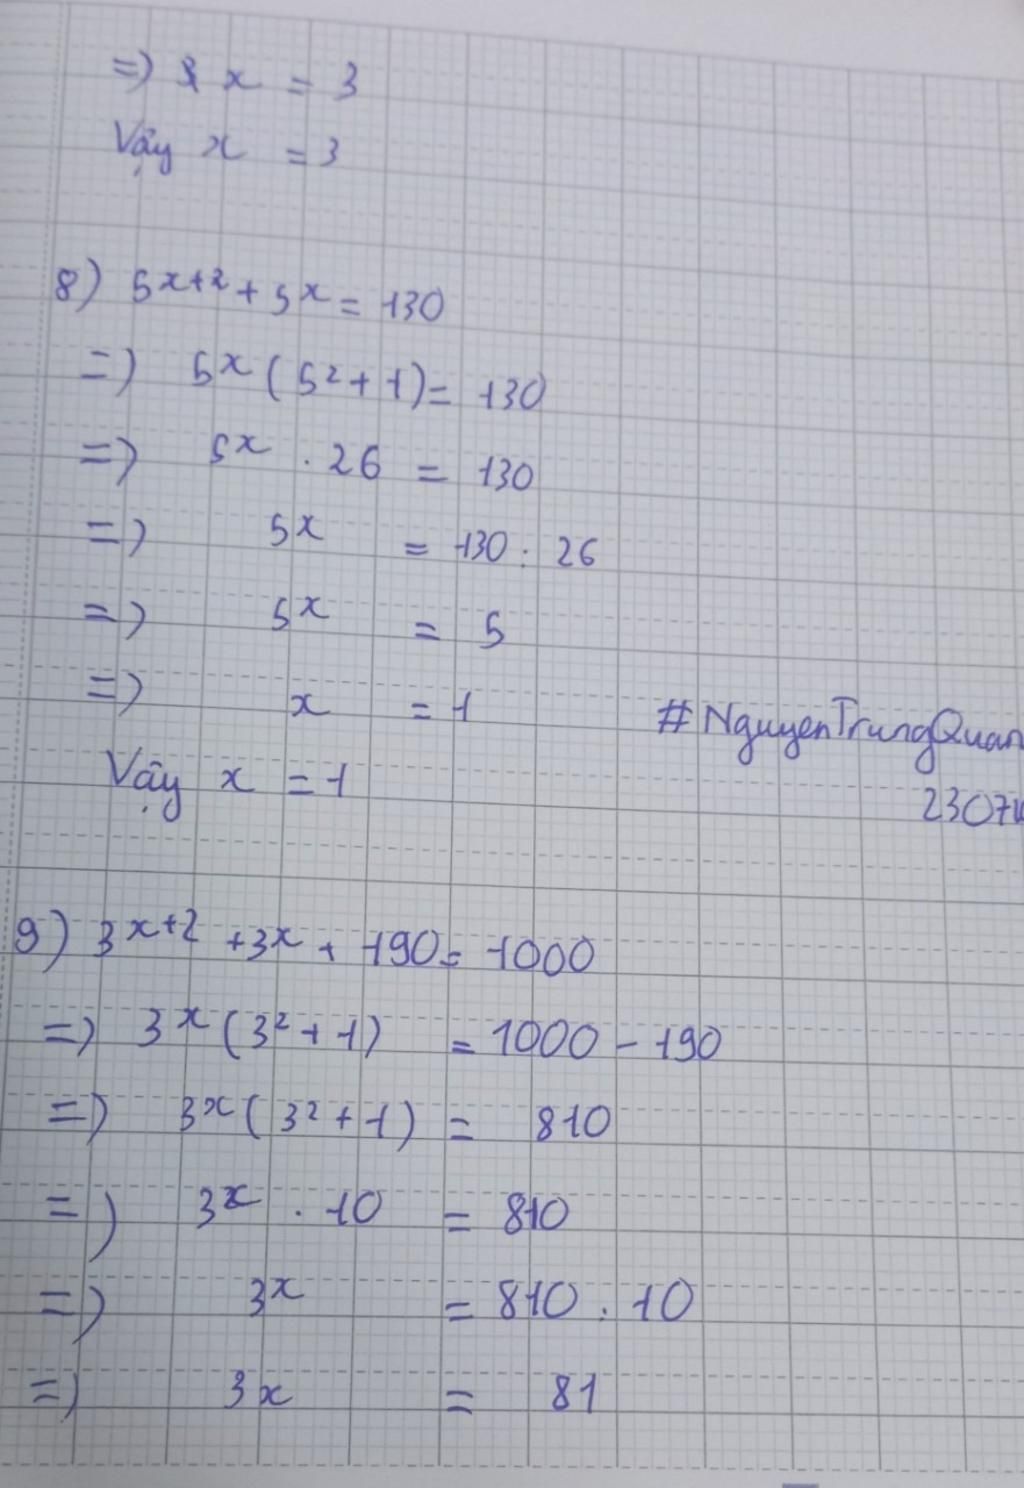 =) x = 3
Vậy x = 3
8) 5^{x+2} + 5^x = 130
=) 5^x (5² + 1) = 130
=) 5^x . 26 = 130
=) 5^x = 130 : 26
=) 5^x = 5
=) x = 1
#NguyenTrungQuan
Vậy x = 1
2307
9) 3^{x+2} + 3^x + 190 = 1000
=) 3^x (3² + 1) = 1000 - 190
=) 3^x (3² + 1) = 810
=) 3^x . 10 = 810
=) 3^x = 810 : 10
=) 3x = 81